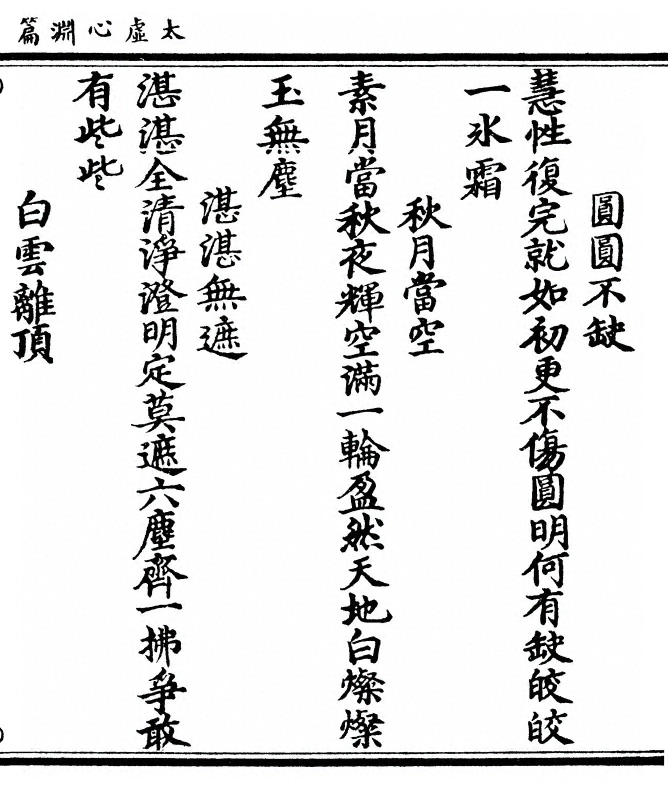 太虛心淵篇
圓圓不缺
慧性復完就如初更不傷圓明何有缺皎皎
一氷霜
秋月當空
素月當秋夜輝空滿一輪盈然天地白燦燦
玉無塵
湛湛無遮
湛湛全清淨澄明定莫遮六塵齊一拂爭敢
有些些
白雲離頂